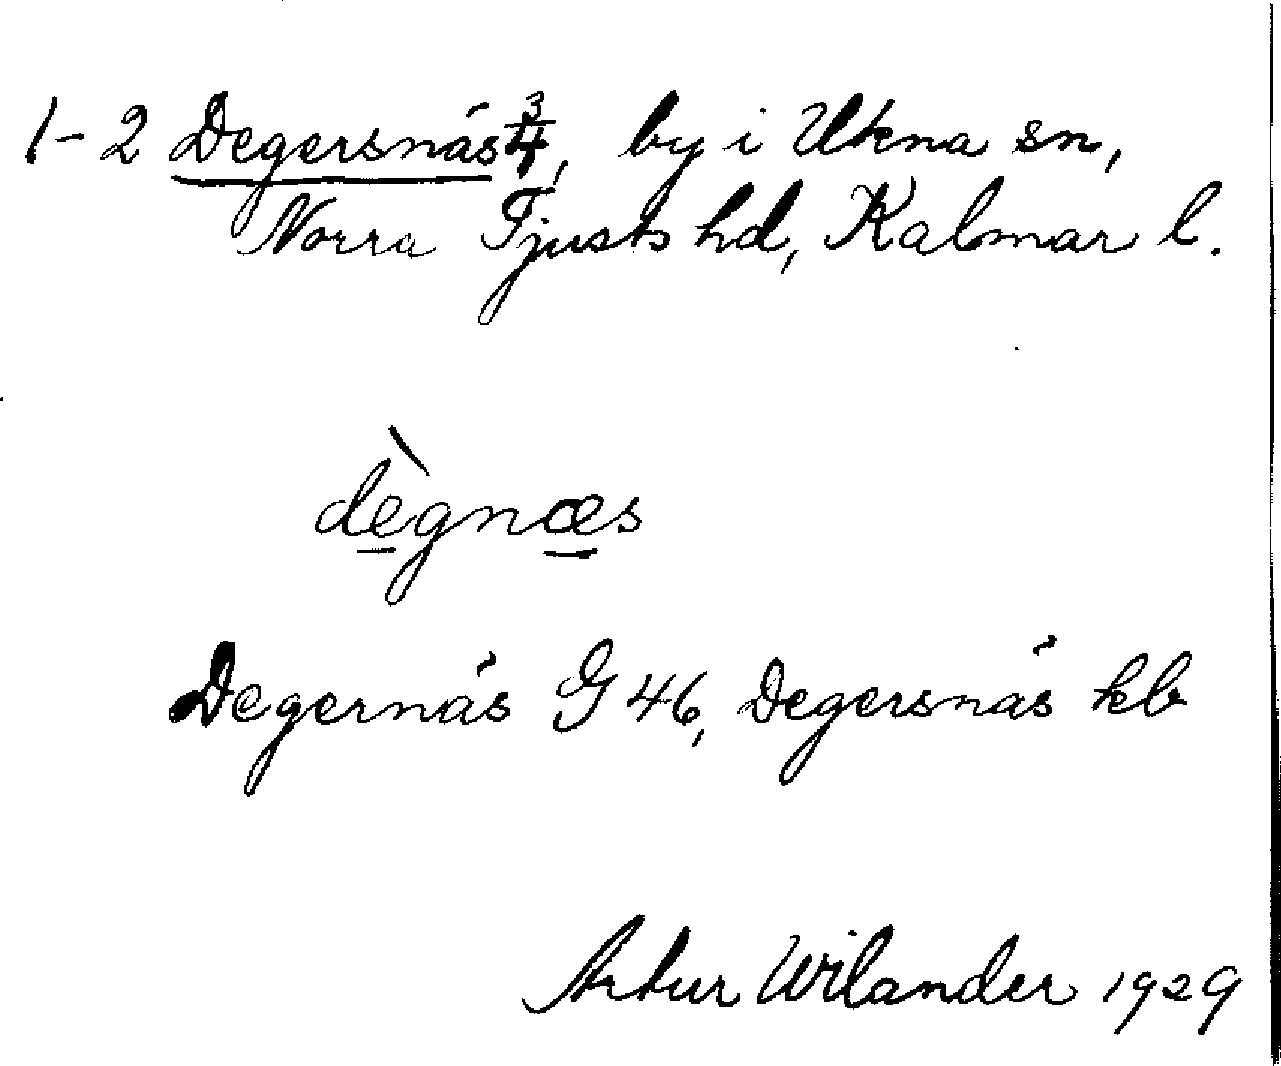 1-2 Degersnäs 3/4, by i Ukna sn,
Norra Tjusts hd, Kalmar l.
dègnæs
Degernäs G 46, Degersnäs kb
Artur Wilander 1929